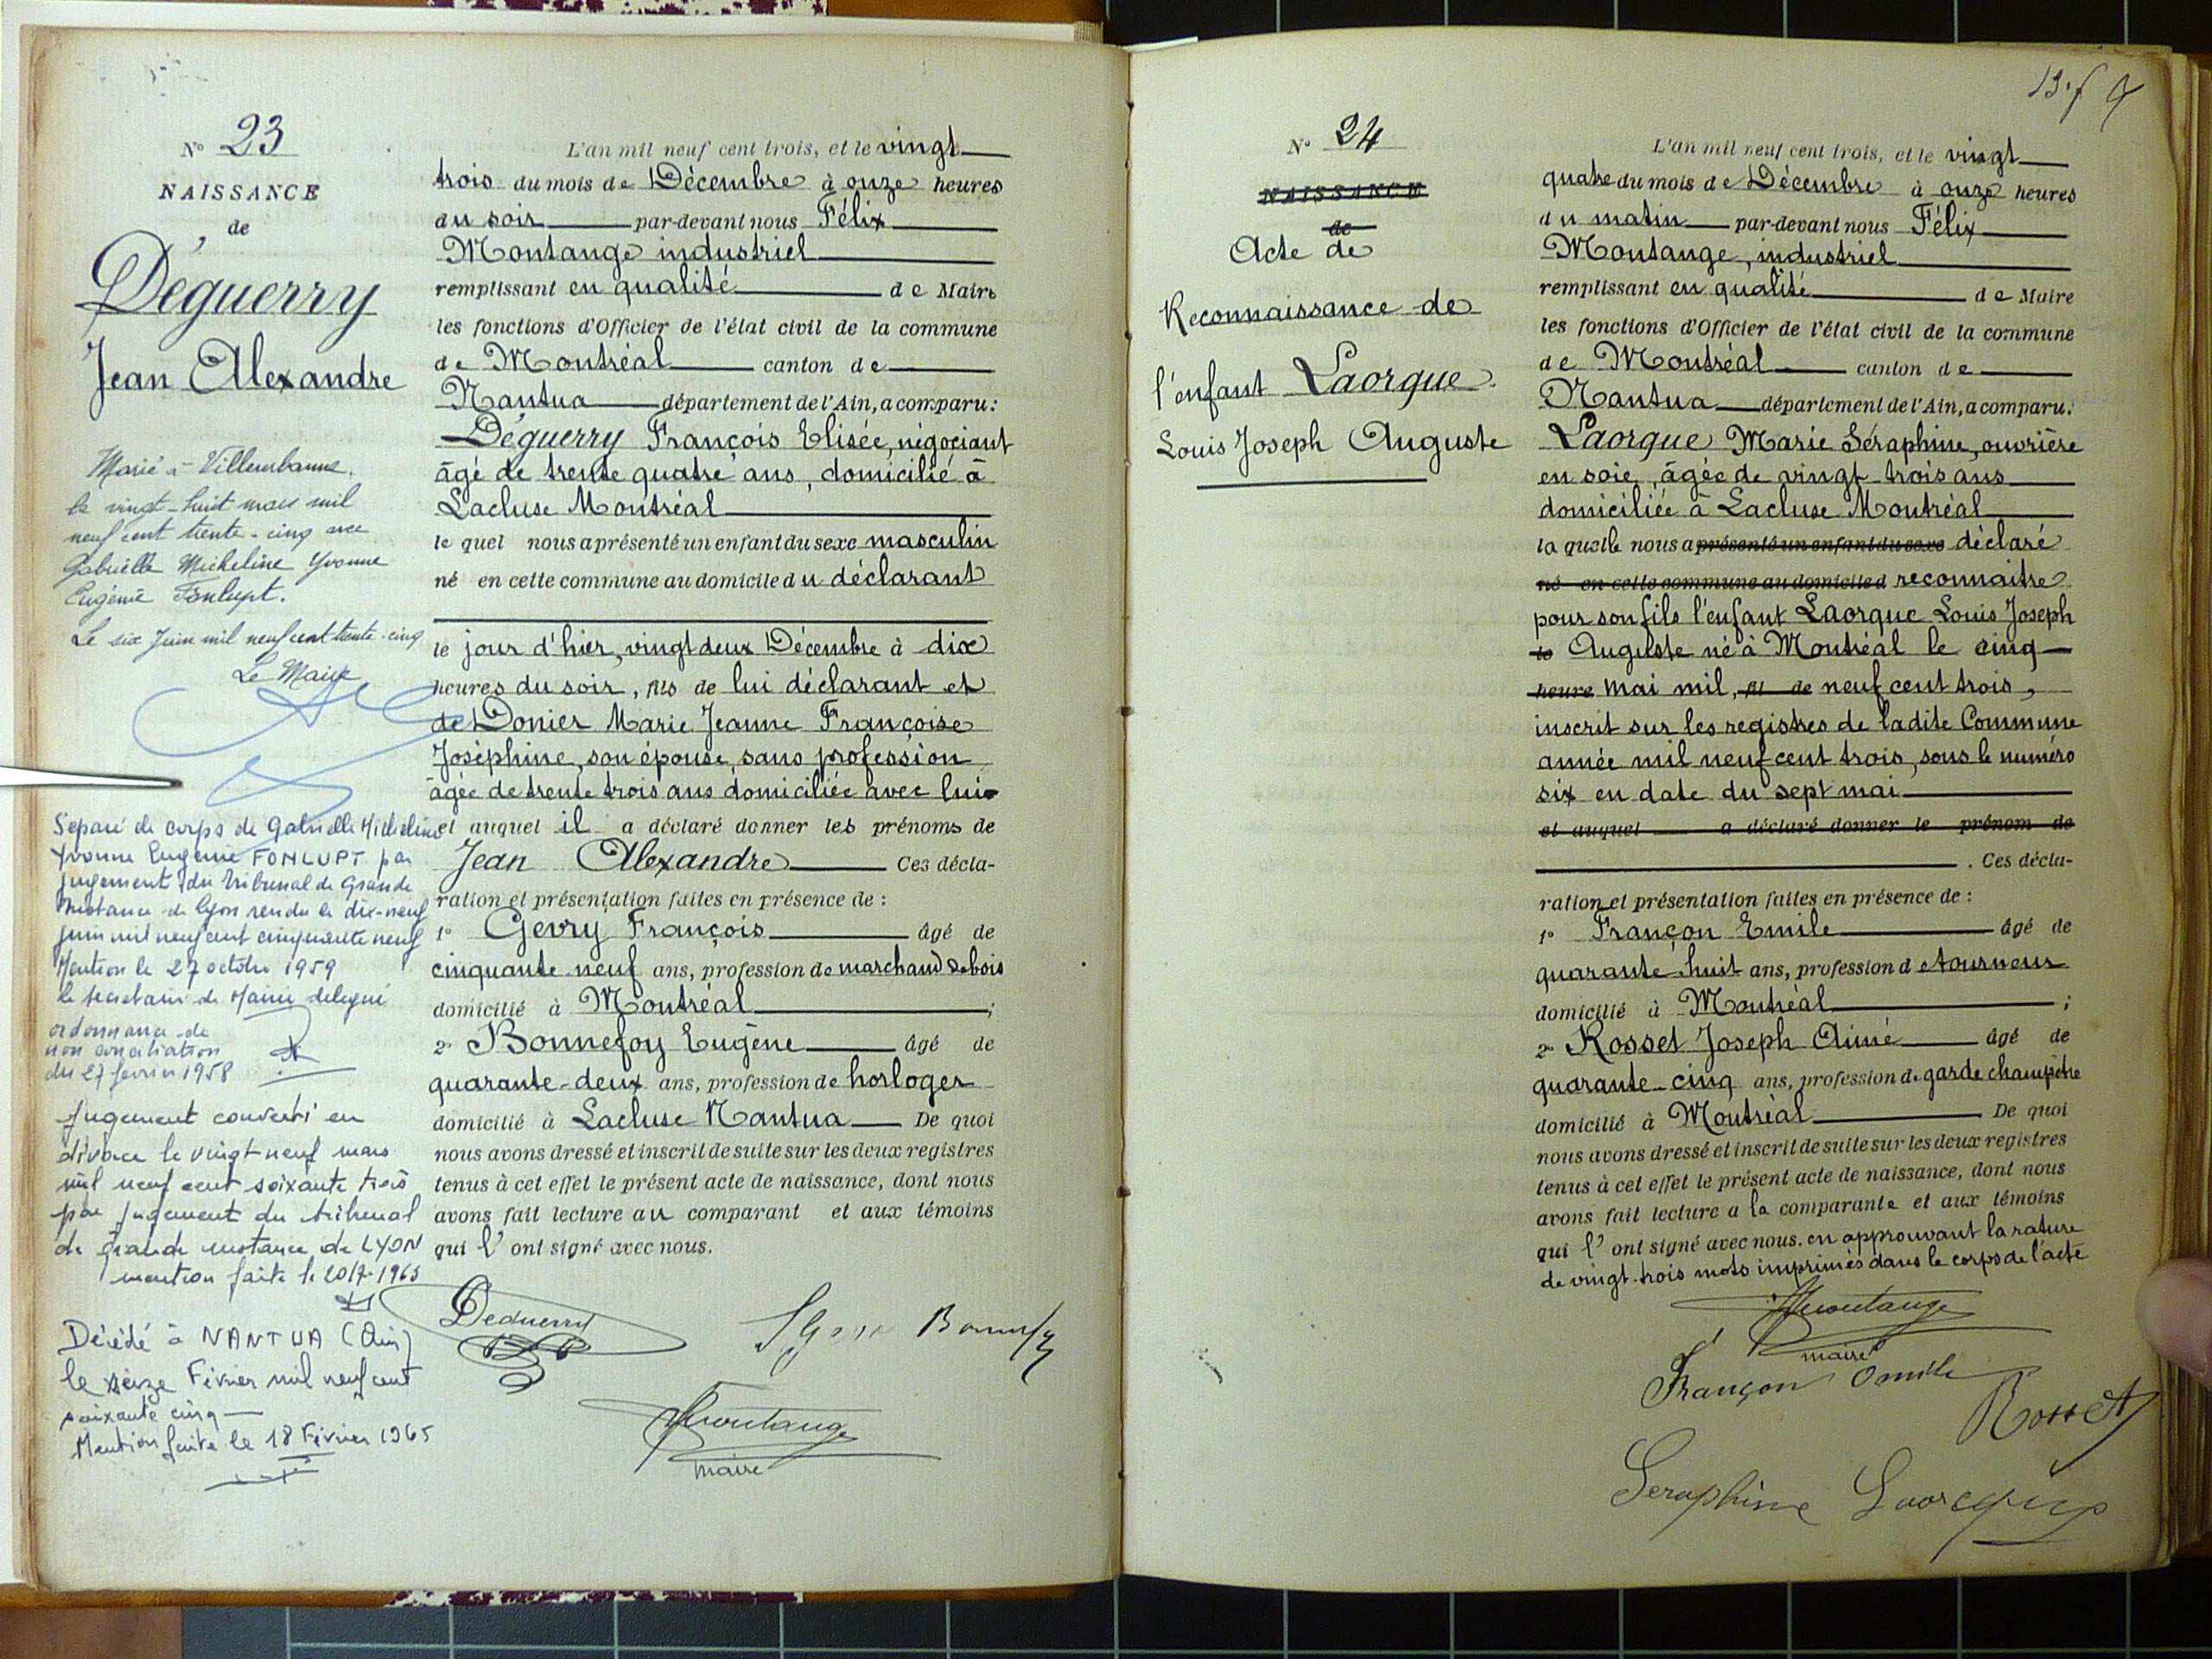 N° 23
NAISSANCE
de
Déguerry
Jean Alexandre
Marié à Villeurbanne
le vingt-huit mars mil
neuf cent trente-cinq avec
Gabrielle Micheline Yvonne
Eugénie Fonlupt.
Le six Juin mil neuf cent trente-cinq
Le Maire
Séparé de corps de Gabrielle Micheline
Yvonne Eugénie FONLUPT par
jugement du Tribunal de Grande
Instance de Lyon rendu le dix-neuf
juin mil neuf cent cinquante neuf
Mention le 27 octobre 1959
le secrétaire de Mairie délégué
ordonnance de
non conciliation
du 27 février 1958
Jugement converti en
divorce le vingt neuf mars
mil neuf cent soixante trois
par jugement du tribunal
de grande instance de LYON
mention faite le 20/7-1963
Décédé à NANTUA (Ain)
le seize Février mil neuf cent
soixante cinq
Mention faite le 18 Février 1965
L'an mil neuf cent trois, et le vingt
trois du mois de Décembre à onze heures
du soir par-devant nous Félix
Montange industriel
remplissant en qualité de Maire
les fonctions d'Officier de l'état civil de la commune
de Montréal canton de
Nantua département de l'Ain, a comparu:
Déguerry François Elisée, négociant
âgé de trente quatre ans, domicilié à
Lacluse Montréal
le quel nous a présenté un enfant du sexe masculin
né en cette commune au domicile du déclarant
le jour d'hier, vingt deux Décembre à dix
heures du soir, fils de lui déclarant et
de Donier Marie Jeanne Françoise
Joséphine, son épouse, sans profession
âgée de trente trois ans domiciliée avec lui
et auquel il a déclaré donner les prénoms de
Jean Alexandre Ces décla-
ration et présentation faites en présence de :
1° Gevry François âgé de
cinquante neuf ans, profession de marchand de bois
domicilié à Montréal ;
2° Bonnefoy Eugène âgé de
quarante-deux ans, profession de horloger
domicilié à Lacluse Nantua De quoi
nous avons dressé et inscrit de suite sur les deux registres
tenus à cet effet le présent acte de naissance, dont nous
avons fait lecture au comparant et aux témoins
qui l'ont signé avec nous.
Deguerry
Montange
maire
N° 24
NAISSANCE
de
Acte de
Reconnaissance de
l'enfant Laorque
Louis Joseph Auguste
L'an mil neuf cent trois, et le vingt
quatre du mois de Décembre à onze heures
du matin par-devant nous Félix
Montange, industriel
remplissant en qualité de Maire
les fonctions d'Officier de l'état civil de la commune
de Montréal canton de
Nantua département de l'Ain, a comparu:
Laorque Marie Séraphine, ouvrière
en soie, âgée de vingt-trois ans
domiciliée à Lacluse Montréal
la quelle nous a présenté un enfant du sexe déclaré
né en cette commune au domicile d reconnaitre
pour son fils l'enfant Laorque Louis Joseph
le Auguste né à Montréal le cinq
heure mai mil, fil de neuf cent trois,
inscrit sur les registres de ladite Commune
année mil neuf cent trois, sous le numéro
six en date du sept mai
et auquel a déclaré donner le prénom de
. Ces décla-
ration et présentation faites en présence de :
1° Françon Emile âgé de
quarante huit ans, profession de tourneur
domicilié à Montréal ;
2° Rosset Joseph Aimé âgé de
quarante-cinq ans, profession de garde champêtre
domicilié à Montréal De quoi
nous avons dressé et inscrit de suite sur les deux registres
tenus à cet effet le présent acte de naissance, dont nous
avons fait lecture a la comparante et aux témoins
qui l'ont signé avec nous. en approuvant la rature
de vingt-trois mots imprimés dans le corps de l'acte
Montange
maire
Françon Emile
Rosset
Seraphine Laorque